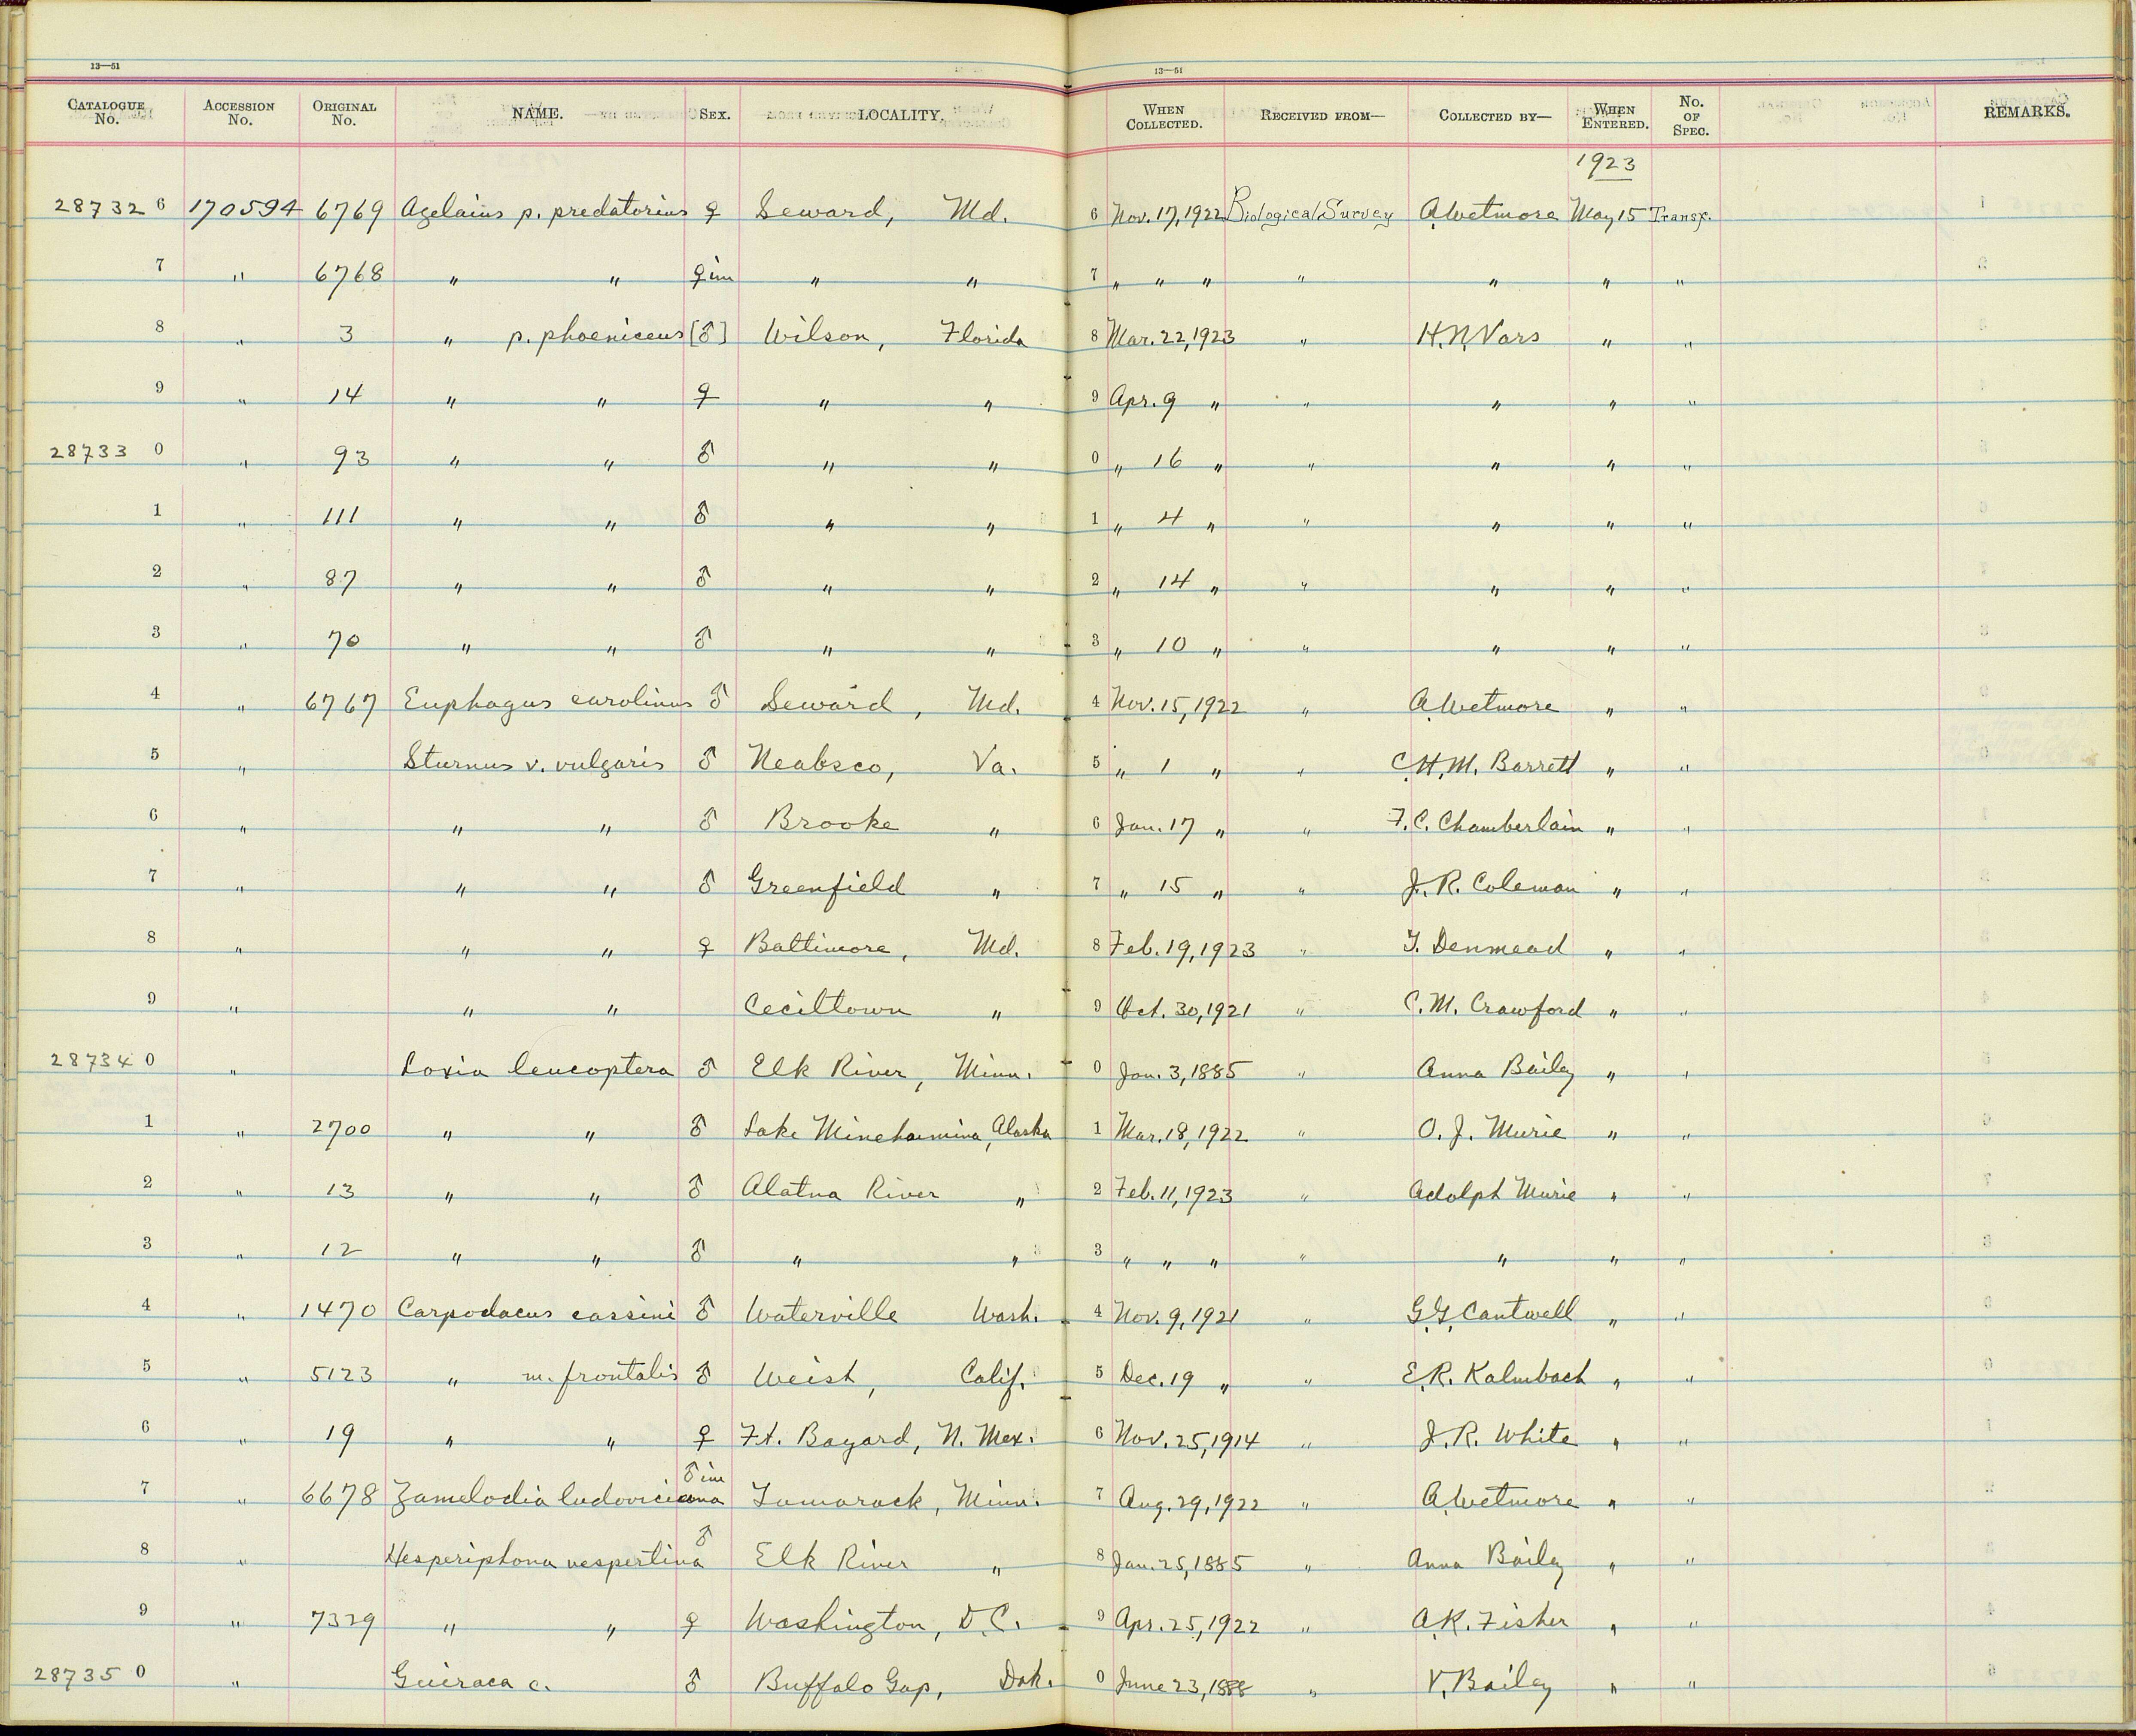 13—51 13—51
CATALOGUE No. ACCESSION No. ORIGINAL No. NAME. SEX. LOCALITY. WHEN COLLECTED. RECEIVED FROM— COLLECTED BY— WHEN ENTERED. No. OF SPEC. REMARKS.
1923
28732 6 170594 6769 Agelaius p. predatorius ♀ Seward, Md. 6 Nov. 17, 1922 Biological Survey A. Wetmore May 15 Transf.
7 " 6768 " " ♀ im " " 7 " " " " " " "
8 " 3 " p. phoeniceus [♂] Wilson, Florida 8 Mar. 22, 1923 " H. N. Vars " "
9 " 14 " " ♀ " " 9 Apr. 9 " " " " "
28733 0 " 93 " " ♂ " " 0 " 16 " " " " "
1 " 111 " " ♂ " " 1 " 4 " " " " "
2 " 87 " " ♂ " " 2 " 14 " " " " "
3 " 70 " " ♂ " " 3 " 10 " " " " "
4 " 6767 Euphagus carolinus ♂ Seward, Md. 4 Nov. 15, 1922 " A. Wetmore " "
5 " Sturnus v. vulgaris ♂ Neabsco, Va. 5 " 1 " " C. H. M. Barrett " "
6 " " " ♂ Brooke " 6 Jan. 17 " " F. C. Chamberlain " "
7 " " " ♂ Greenfield " 7 " 15 " " J. R. Coleman " "
8 " " " ♀ Baltimore, Md. 8 Feb. 19, 1923 " T. Denmead " "
9 " " " Ceciltown " 9 Oct. 30, 1921 " C. M. Crawford " "
28734 0 " Loxia leucoptera ♂ Elk River, Minn. 0 Jan. 3, 1885 " Anna Bailey " "
1 " 2700 " " ♂ Lake Minchumina, Alaska 1 Mar. 18, 1922 " O. J. Murie " "
2 " 13 " " ♂ Alatna River " 2 Feb. 11, 1923 " Adolph Murie " "
3 " 12 " " ♂ " " 3 " " " " " " "
4 " 1470 Carpodacus cassini ♂ Waterville Wash. 4 Nov. 9, 1921 " G. G. Cantwell " "
5 " 5123 " m. frontalis ♂ Weist, Calif. 5 Dec. 19 " " E. R. Kalmbach " "
6 " 19 " " ♀ Ft. Bayard, N. Mex. 6 Nov. 25, 1914 " J. R. White " "
7 " 6678 Zamelodia ludoviciana ♂ im Tamarack, Minn. 7 Aug. 29, 1922 " A. Wetmore " "
8 " Hesperiphona vespertina ♂ Elk River " 8 Jan. 25, 1885 " Anna Bailey " "
9 " 7329 " " ♀ Washington, D.C. 9 Apr. 25, 1922 " A. K. Fisher " "
28735 0 " Guiraca c. ♂ Buffalo Gap, Dak. 0 June 23, 1888 " V. Bailey " "